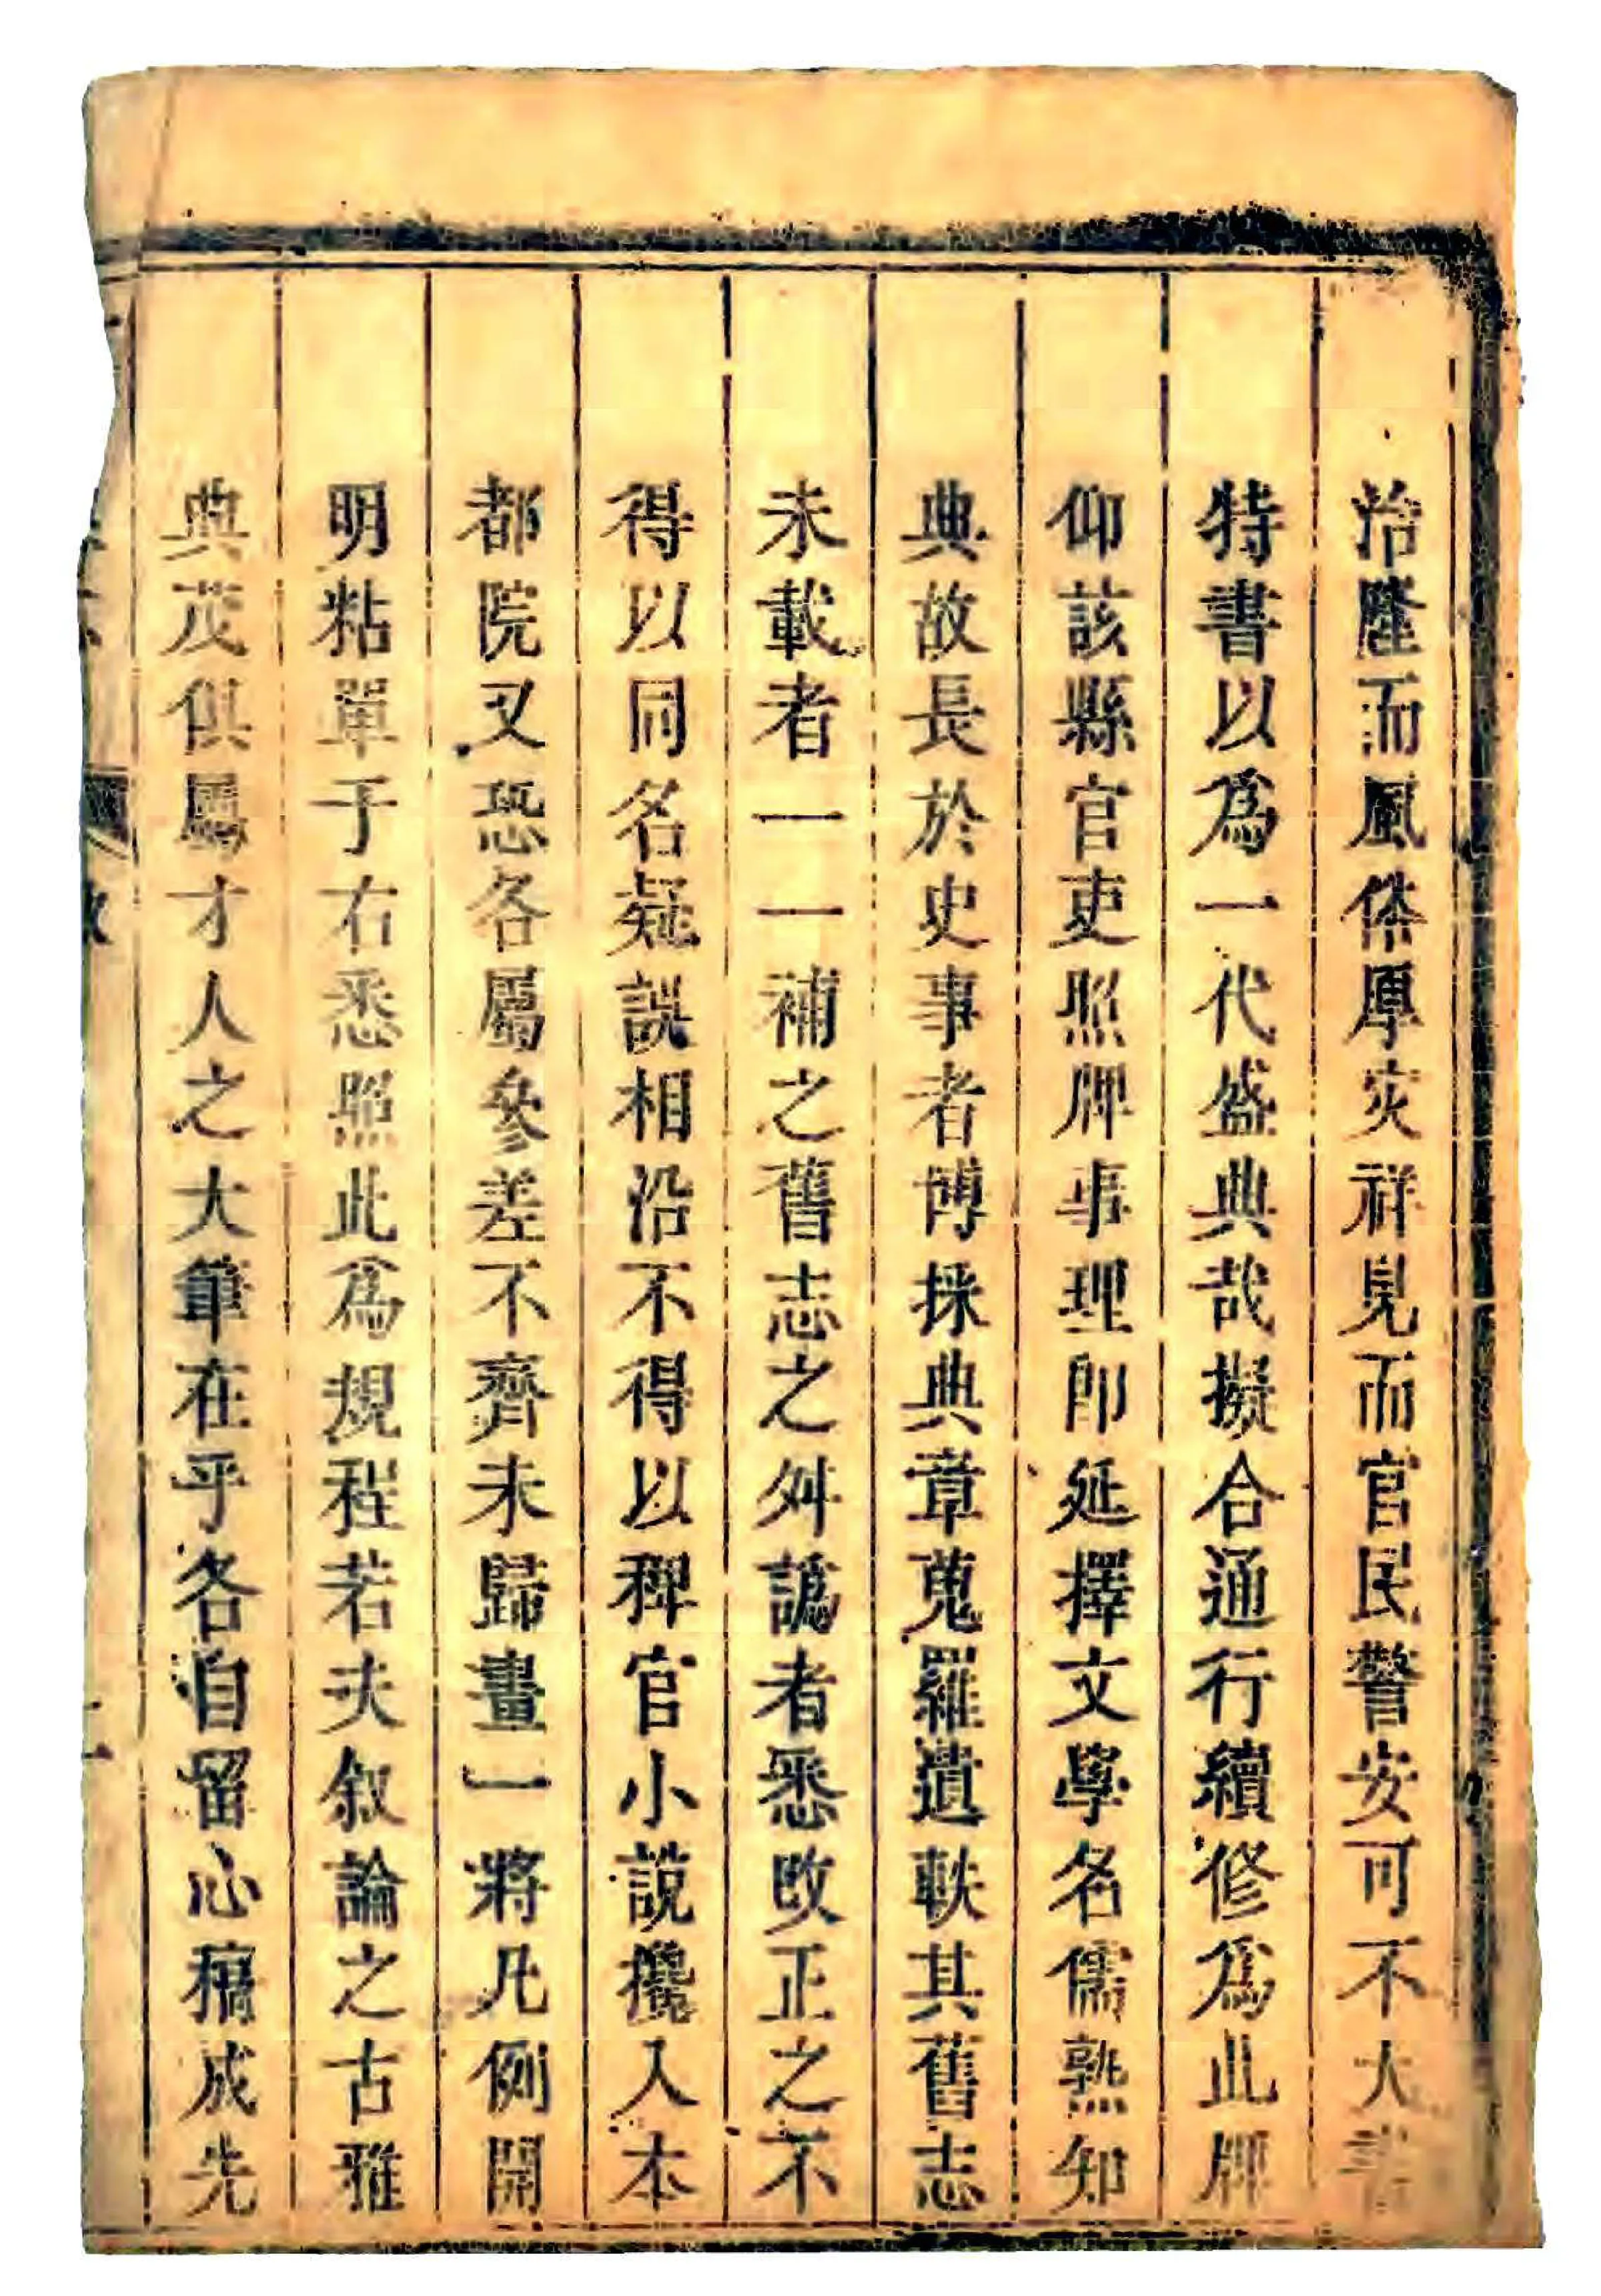 治隆而風俗厚灾祥見而官民警安可不大書
特書以爲一代盛典哉擬合通行續修爲此牌
仰該縣官吏照牌事理卽延擇文學名儒熟知
典故長於史事者博採典章蒐羅遺軼其舊志
未載者一一補之舊志之舛譌者悉改正之不
得以同名疑誤相沿不得以稗官小說攙入本
都院又恐各屬參差不齊未歸畫一將凡例開
明粘單于右悉照此爲規程若夫叙論之古雅
典茂俱屬才人之大筆在乎各自留心稿成先